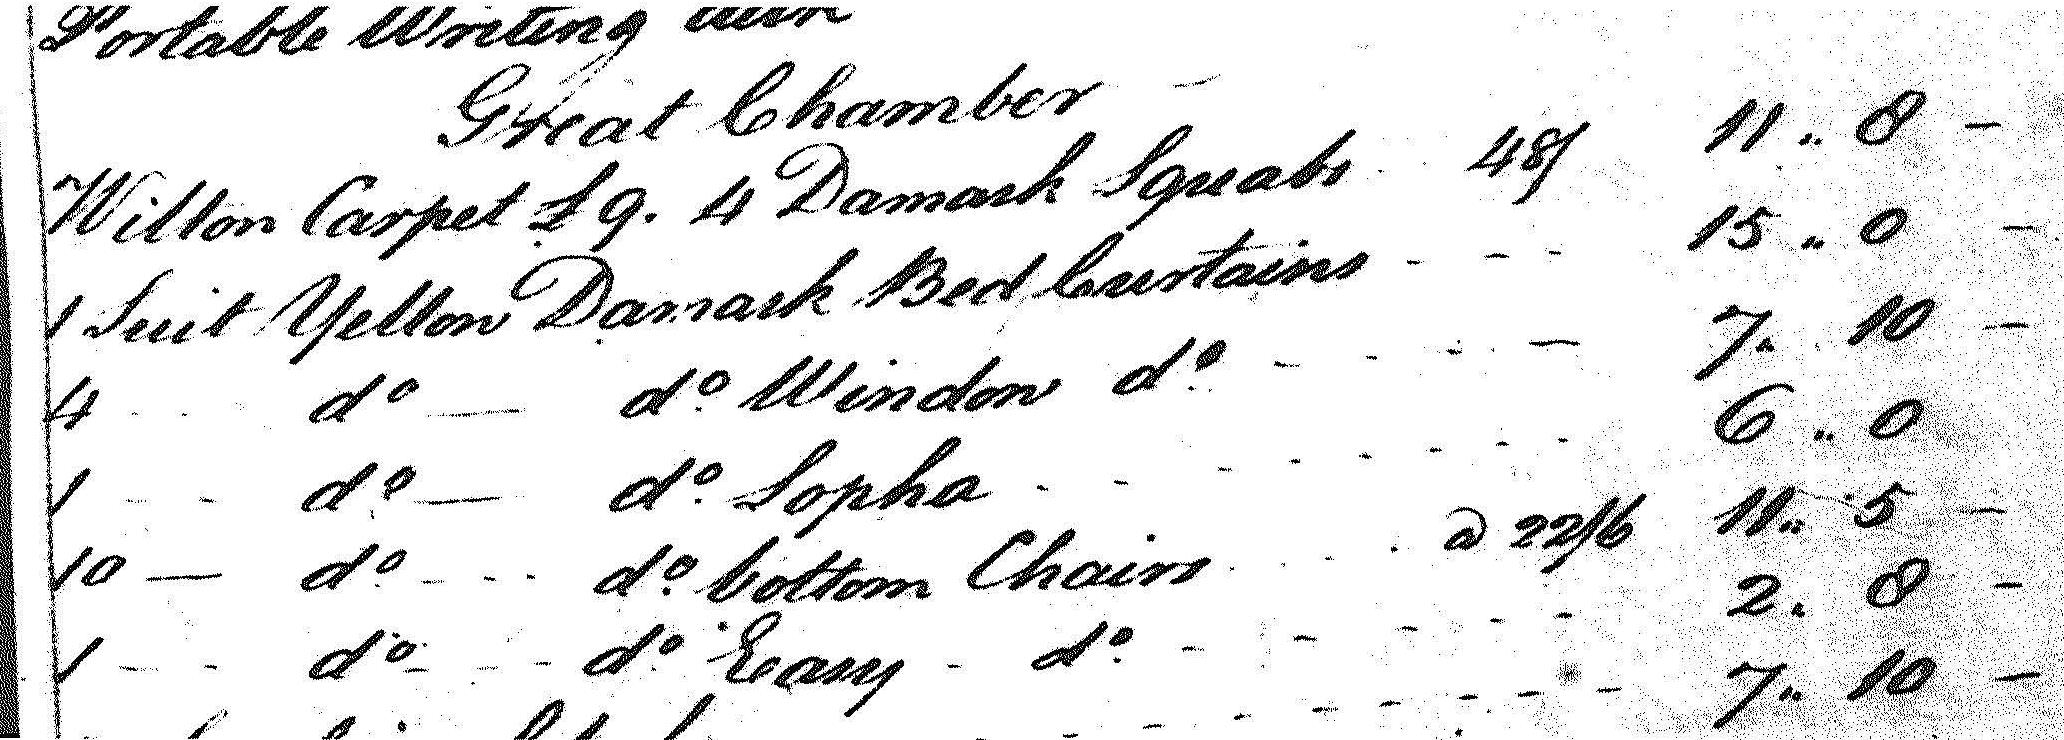 Portable Writing
Great Chamber
Wilton Carpet £9. 4 Damask Squabs 48/ 11 .. 8 -
1 Suit Yellow Damask Bed Curtains - - - 15 .. 0 -
4 - - do — do. Window do - - - — 7 .. 10 -
1 - - do — do. Sopha - - - - - - - 6 .. 0
10 — do. - - - do. bottom Chairs . . . . @ 22/6 11 .. 5 -
1 - - do - - - do. Easy - do. - - - - - 2 . 8 -
7 .. 10 -